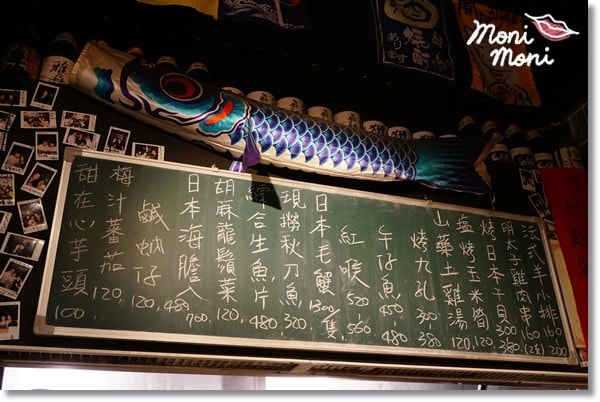 Moni
Moni
法式羊小排 160 200
明太子雞肉串 160 (2支)
烤日本干貝 300 380
塩烤玉米筍 120
山藥土雞湯 120
烤九孔 300 380
午仔魚 450-480
紅喉 520-560
日本毛蟹 1300隻
現撈秋刀魚 320
綜合生魚片 480
胡麻龍鬚菜 120
日本海膽 480 700
鹹蚋仔 120
梅汁蕃茄 120
甜在心芋頭 100
あります